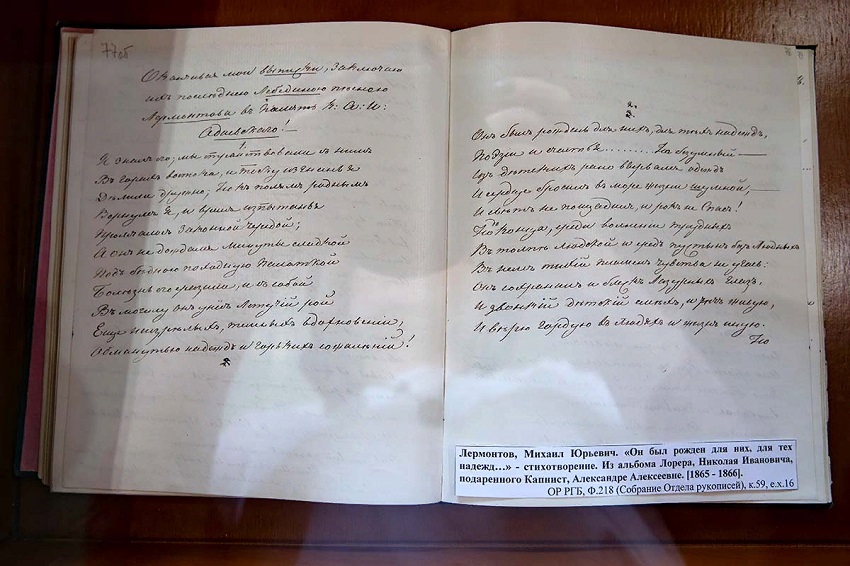 77об
Оканчивая мои выписки, заключаю
ихъ последнею Лебединою пѣснью
Лермонтова въ Память К: А: И:
Адоевскаго!
1.
Я зналъ его; мы странствовали съ нимъ
Въ горахъ востока, и тоску изгнанья
Дѣлили дружно; Но къ полямъ роднымъ
Вернулся я, и время испытанья
Промчалося законной чередой;
А онъ не дождался минуты сладкой
Подъ бѣдною походною палаткой
Болезнь его сразила, и съ собой
Въ могилу онъ унёсъ летучій рой
Еще незрѣлыхъ, темныхъ вдохновеній,
Обманутыхъ надеждъ и горькихъ сожалѣній!
2.
Онъ былъ рожденъ для нихъ, для тѣхъ надеждъ,
Поэзіи и счастья......... Но безумный —
Изъ дѣтскихъ рано вырвался одеждъ
И сердце бросилъ въ море жизни шумной, —
И свѣтъ не пощадилъ, и рокъ не спасъ!
Но до конца, среди волненій трудныхъ
Въ толпѣ людской и средь пустынь безлюдныхъ
Въ немъ тихій пламень чувства не угасъ:
Онъ сохранилъ и блескъ лазурныхъ глазъ,
И звонкій дѣтскій смѣхъ, и рѣчь живую,
И вѣру гордую въ людей и жизнь иную.
Но
Лермонтов, Михаил Юрьевич. «Он был рожден для них, для тех
надежд…» - стихотворение. Из альбома Лорера, Николая Ивановича,
подаренного Капнист, Александре Алексеевне. [1865 - 1866].
ОР РГБ, Ф.218 (Собрание Отдела рукописей), к.59, е.х.16